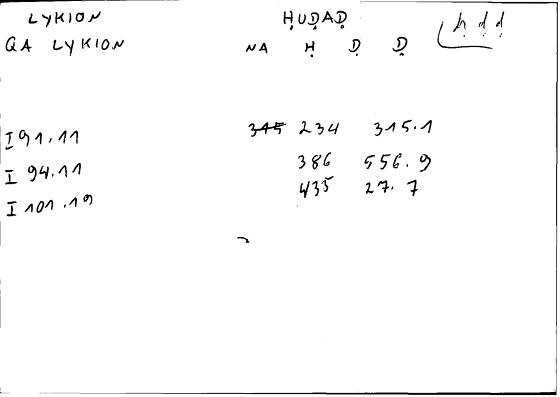 LYKION ḤUḌAḌ ḥ ḍ ḍ
QA LYKION NA Ḥ Ḍ Ḍ
I 91.11 315 234 315.1
I 94.11 386 556.9
I 101.19 435 27.7